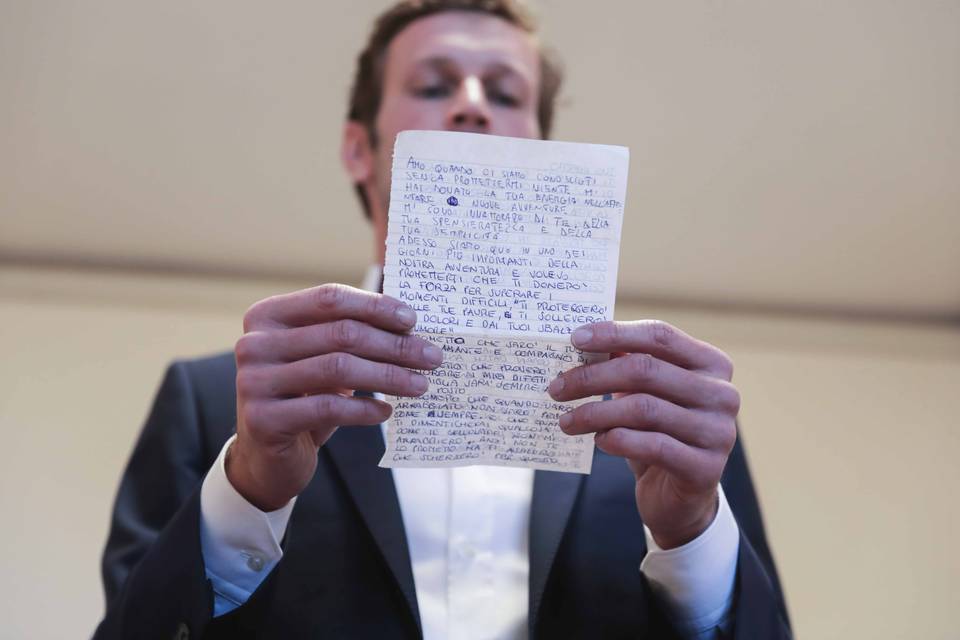 AMO QUANDO CI SIAMO CONOSCIUTI
SENZA PROMETTERMI NIENTE M'
HAI DONATO LA TUA ENERGIA NELL'AFFR
NTARE NUOVE AVVENTURE.
MI SONO INNAMORATO DI TE, DELLA
TUA SPENSIERATEZZA E DELLA
TUA SEMPLICITÀ
ADESSO SIAMO QUI IN UNO DEI
GIORNI PIÙ IMPORTANTI DELLA
NOSTRA AVVENTURA E VOLEVO
PROMETTERTI CHE TI DONERO'
LA FORZA PER SUPERARE I
MOMENTI DIFFICILI, "TI PROTEGGERO'
DALLE TUE PAURE, TI SOLLEVERO'
DOLORI E DAI TUOI SBALZ
UMORE"
PROMETTO CHE SARO' IL TUO
AMANTE E COMPAGNO DI
CHE PROVERO'
MIEI DIFETTI
SARA' SEMPRE
POSTO
CHE QUANDO SARO
ARRABBIATO NON
COME SEMPRE, E CHE QUAN
TI DIMENTICHERAI QUALCOSA
COME IL CELLULARE, NON MI
ARRABBIERO', ANZI NON TE
LO PROMETTO MA TI
CHE SCHERZERO' PER QUESTO